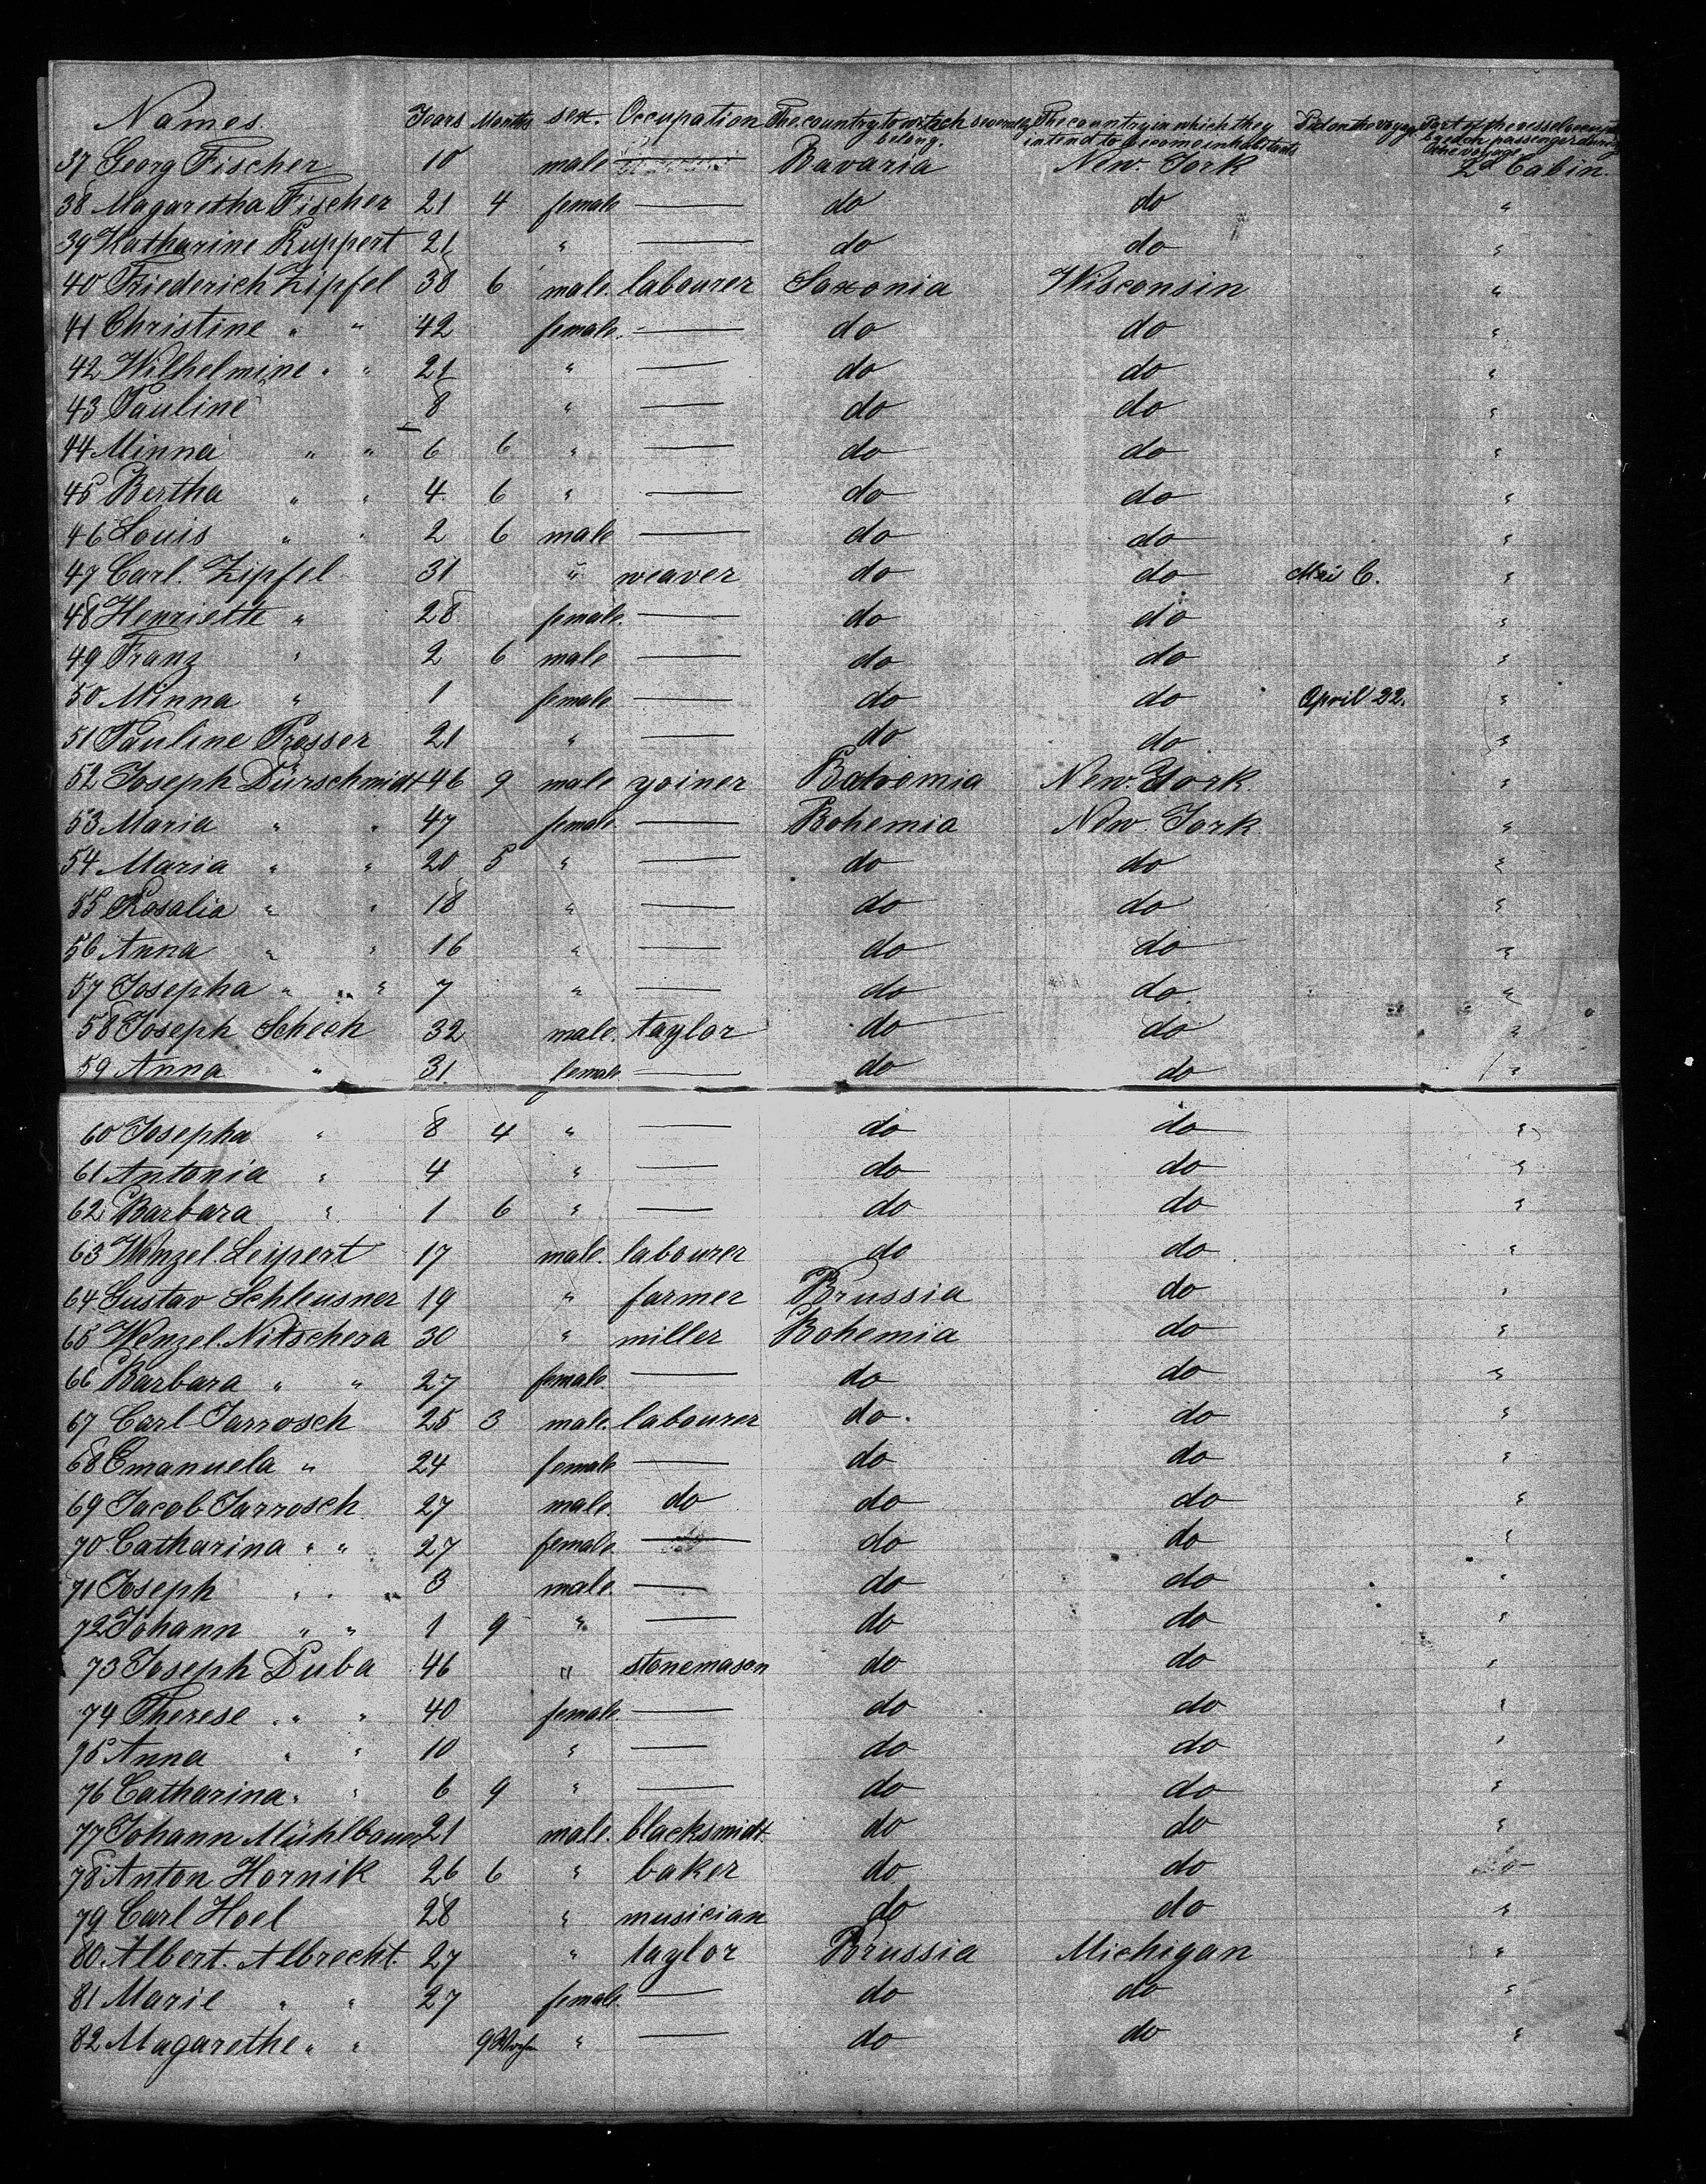 Names Years Months sex. Occupation The country to which severally belong. The country in which they intend to become inhabitants Died on the voyage Part of the vessel occupied by each passenger during the voyage
37 Georg Fischer 10 male Bavaria New. York 2d Cabin.
38 Magaretha Fischer 21 4 female — do do "
39 Katharine Ruppert 21 " — do do "
40 Friederich Zipfel 38 6 male. labourer Saxonia Wisconsin "
41 Christine " " 42 female. — do do "
42 Wilhelmine " " 21 " — do do "
43 Pauline 8 " — do do "
44 Minna " " 6 6 " — do do "
45 Bertha " " 4 6 " — do do "
46 Louis " " 2 6 male — do do "
47 Carl. Zipfel 31 " weaver do do Mai 6. "
48 Henriette " 28 female. — do do "
49 Franz " 2 6 male — do do "
50 Minna " 1 female — do do April 22. "
51 Pauline Prosser 21 " — do do "
52 Joseph Dürschmidt 46 9 male yoiner New. York. "
53 Maria " " 47 female — Bohemia New. York "
54 Maria " " 20 5 " — do do "
55 Rosalia " " 18 " — do do "
56 Anna " " 16 " — do do "
57 Josepha " " 7 " — do do. "
58 Joseph Schech 32 male. taylor do do "
59 Anna " 31 female — do do "
60 Josepha " 8 4 " — do do "
61 Antonia " 4 " — do do "
62 Barbara " 1 6 " — do do "
63 Wenzel. Leipert 17 male. labourer do do "
64 Gustav Schleusner 19 " farmer Prussia do "
65 Wenzel. Nitschera 30 " miller Bohemia do "
66 Barbara " " 27 female. — do do "
67 Carl Jarrosch 25 3 male. labourer do. do "
68 Emanuela " 24 female — do do "
69 Jacob Jarrosch 27 male. do do do "
70 Catharina " " 27 female — do do "
71 Joseph " " 3 male. — do do "
72 Johann " " 1 9 " — do do "
73 Joseph Duba 46 " stonemason do do "
74 Therese " " 40 female. — do do "
75 Anna " " 10 " — do do "
76 Catharina " " 6 9 " — do do "
77 Johann Mühlbauer 21 male. blacksmidt do do "
78 Anton Hornik 26 6 " baker do do
79 Carl Hoel 28 " musician do do "
80 Albert. Albrecht. 27 " taylor Prussia Michigan "
81 Marie " " 27 female. — do do "
82 Magarethe " " 9 " — do do "